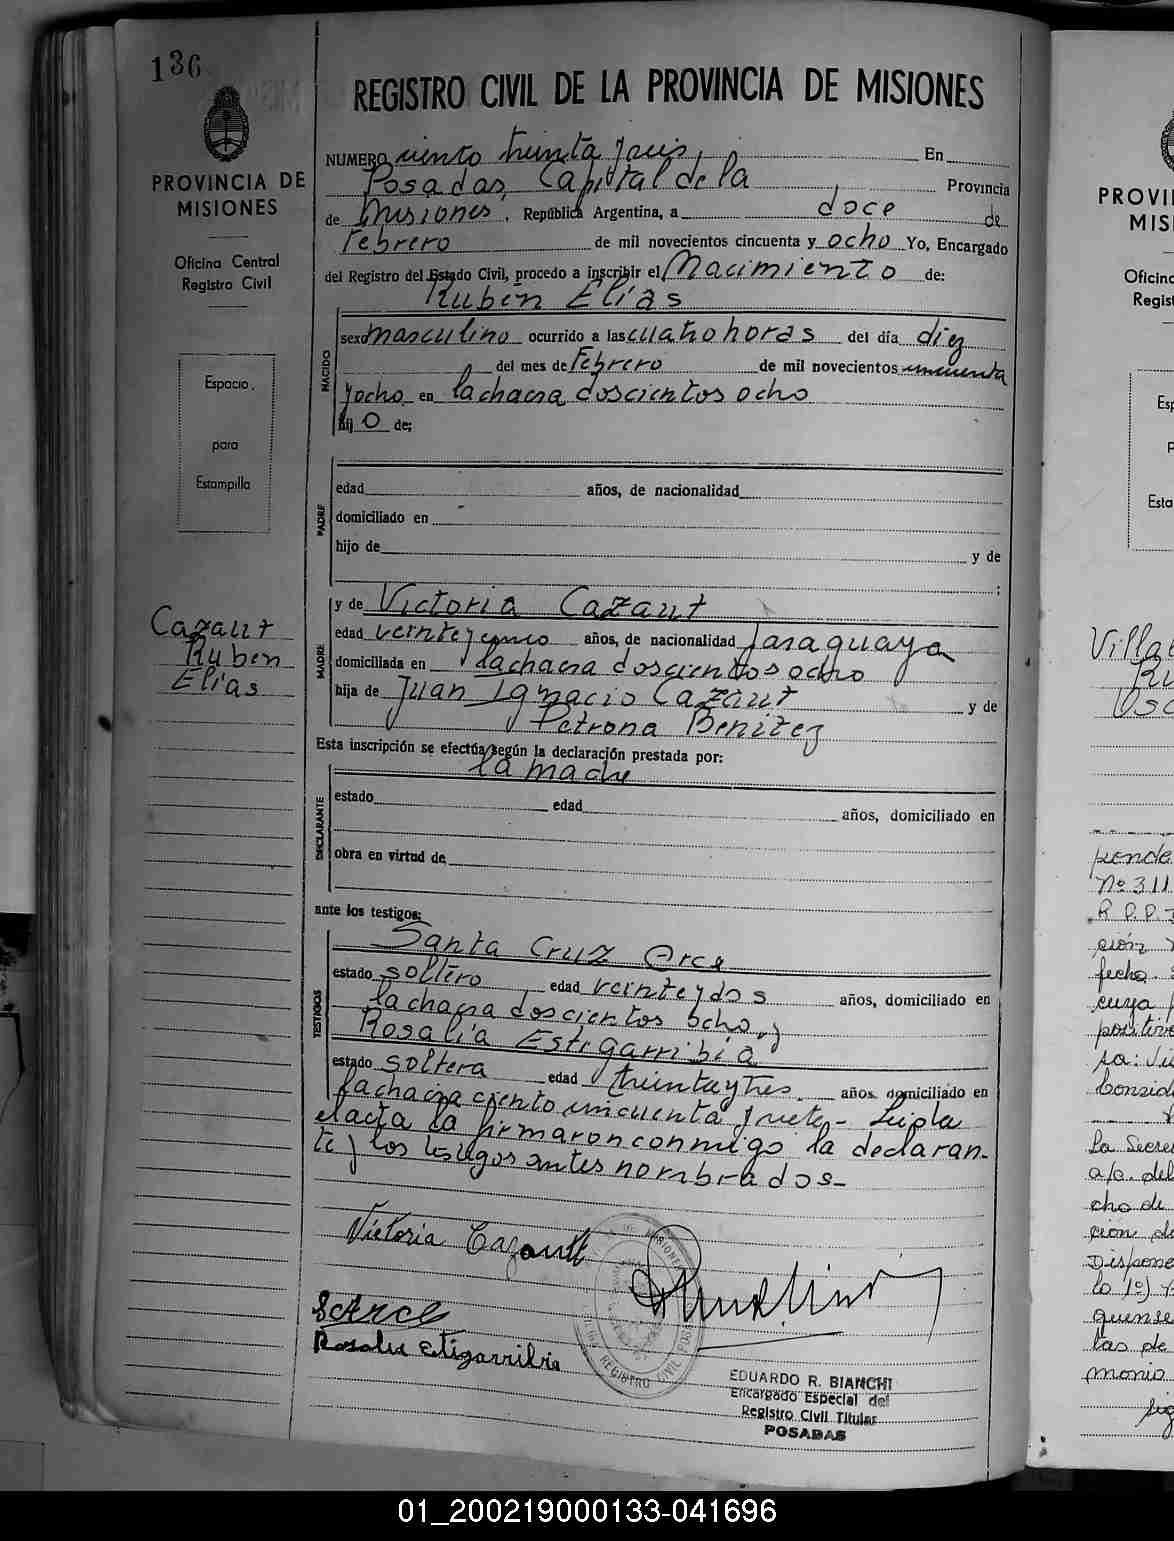 136
PROVINCIA DE
MISIONES
Oficina Central
Registro Civil
Espacio
para
Estampilla
Cazaut
Ruben
Elias
REGISTRO CIVIL DE LA PROVINCIA DE MISIONES
NUMERO ciento treinta y seis, En
Posadas, Capital de la, Provincia
de Misiones, República Argentina, a doce de
Febrero de mil novecientos cincuenta y ocho Yo, Encargado
del Registro del Estado Civil, procedo a inscribir el Nacimiento de:
Rubén Elías
NACIDO
sexo masculino ocurrido a las cuatro horas del día diez
del mes de Febrero de mil novecientos cincuenta
y ocho en la chacra doscientos ocho
hij o de;
PADRE
edad años, de nacionalidad
domiciliado en
hijo de y de
;
MADRE
y de Victoria Cazaut
edad veinte y cinco años, de nacionalidad Paraguaya
domiciliada en la chacra doscientos ocho
hija de Juan Ignacio Cazaut y de
Petrona Benitez
Esta inscripción se efectúa según la declaración prestada por:
la madre
DECLARANTE
estado edad años, domiciliado en
obra en virtud de
ante los testigos:
TESTIGOS
Santa Cruz Arce
estado soltero edad veinte y dos años, domiciliado en
la chacra doscientos ocho, y
Rosalía Estigarribia
estado soltera edad treinta y tres años, domiciliado en
la chacra ciento cincuenta y siete - Leída
el acta la firmaron conmigo la declaran-
te y los testigos antes nombrados -
Victoria Cazautt
S c Arce
Rosalia Etigarribia
REGISTRO CIVIL
EDUARDO R. BIANCHI
Encargado Especial del
Registro Civil Titular
POSADAS
PROVI
MIS
Oficina
Regist
Esp
Esta
Nº 311
fecho
cuya
La Secre
a/c. del
cho de
ción de
Dispone
lo 1º)
las de
monio
01_200219000133-041696